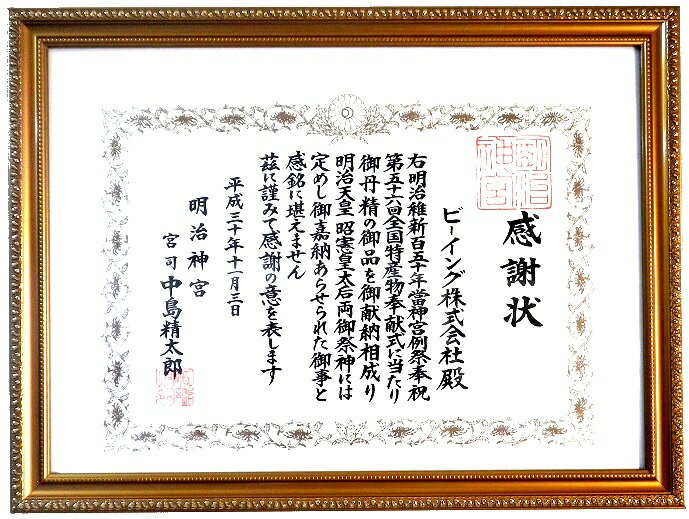 感謝状
ビーイング株式会社殿
右明治維新百五十年當神宮例祭奉祝
第五十六回全国特産物奉献式に当たり
御丹精の御品を御献納相成り
明治天皇昭憲皇太后両御祭神には
定めし御嘉納あらせられた御事と
感銘に堪えません
茲に謹みて感謝の意を表します
平成三十年十一月三日
明治神宮
宮司中島精太郎
明治神宮